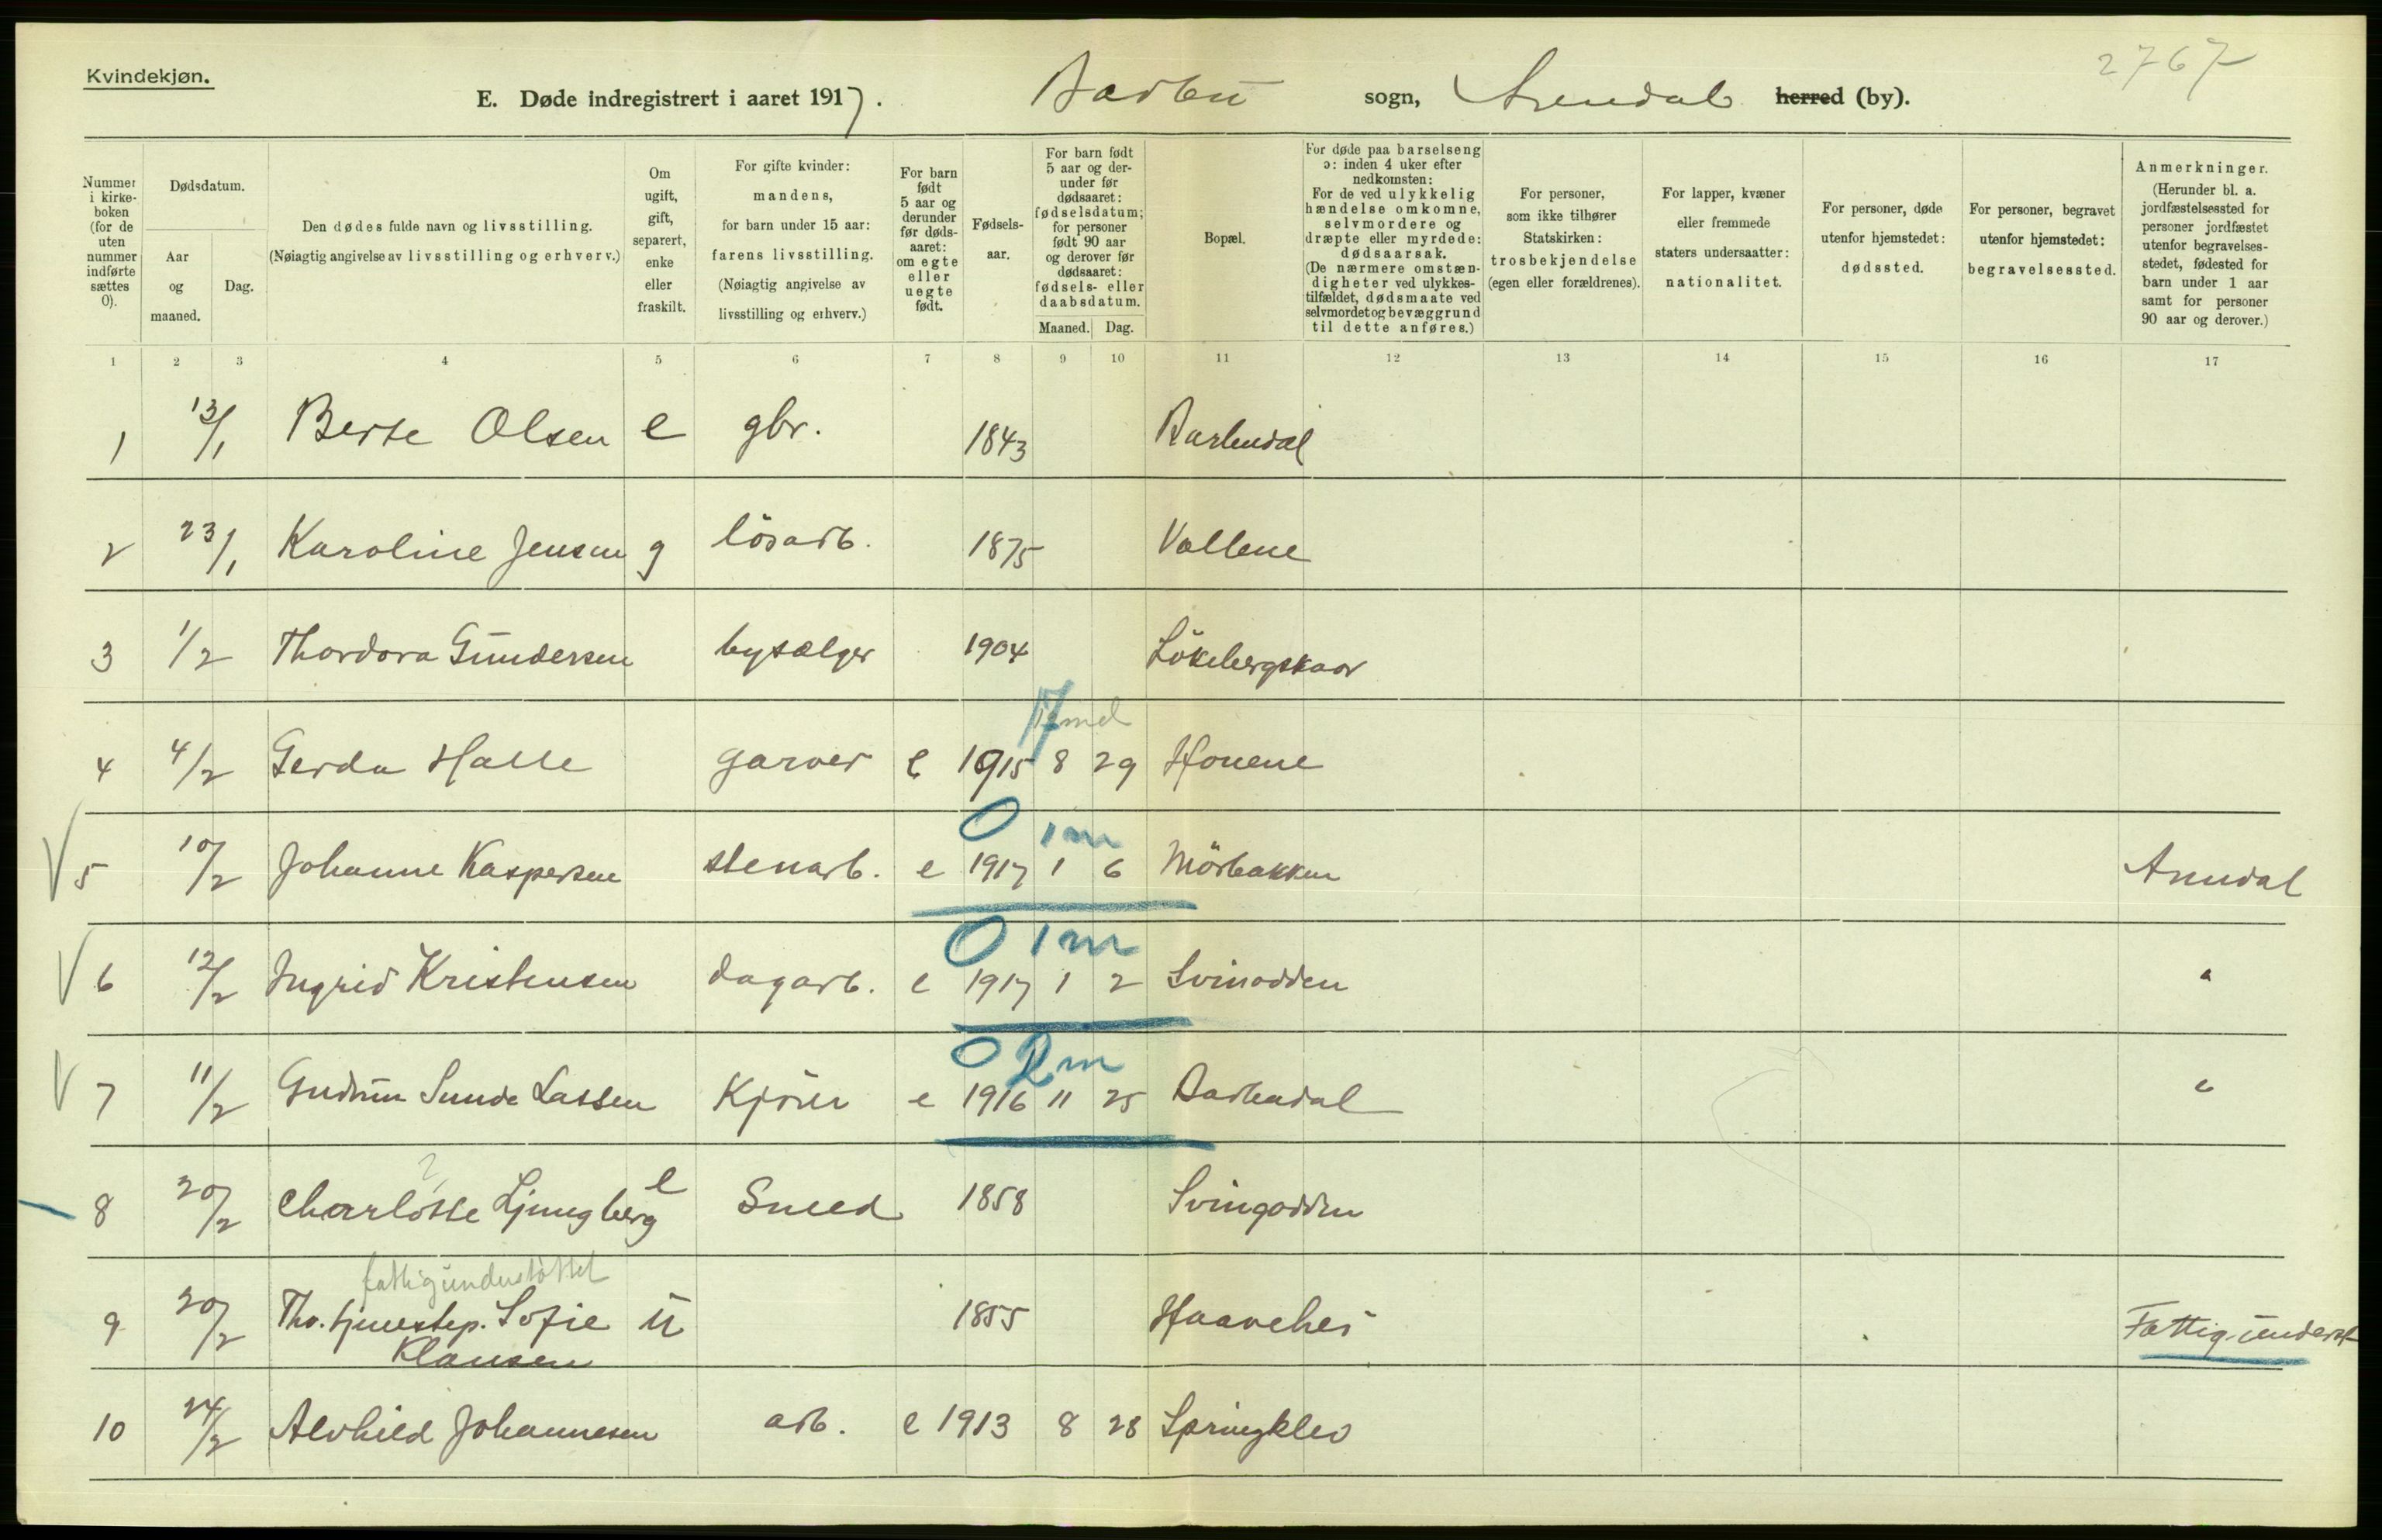 Kvindekjøn.
2767
E. Døde indregistrert i aaret 1917. Barbu sogn, Arendal herred (by).
Nummer i kirkeboken (for de uten nummer indførte sættes 0).
Dødsdatum.
Aar og maaned.
Dag.
Den dødes fulde navn og livsstilling.
(Nøiagtig angivelse av livsstilling og erhverv.)
Om ugift, gift, separert, enke eller fraskilt.
For gifte kvinder: mandens, for barn under 15 aar: farens livsstilling. (Nøiagtig angivelse av livsstilling og erhverv.)
For barn født 5 aar og derunder før dødsaaret: om egte eller uegte født.
Fødselsaar.
For barn født 5 aar og derunder før dødsaaret: fødselsdatum; for personer født 90 aar og derover før dødsaaret: fødsels- eller daabsdatum.
Maaned. Dag.
Bopæl.
For døde paa barselseng ɔ: inden 4 uker efter nedkomsten: For de ved ulykkelig hændelse omkomne, selvmordere og dræpte eller myrdede: dødsaarsak. (De nærmere omstændigheter ved ulykkestilfældet, dødsmaate ved selvmordet og bevæggrund til dette anføres.)
For personer, som ikke tilhører Statskirken: trosbekjendelse (egen eller forældrenes).
For lapper, kvæner eller fremmede staters undersaatter: nationalitet.
For personer, døde utenfor hjemstedet: dødssted.
For personer, begravet utenfor hjemstedet: begravelsessted.
Anmerkninger. (Herunder bl. a. jordfæstelsessted for personer jordfæstet utenfor begravelsesstedet, fødested for barn under 1 aar samt for personer 90 aar og derover.)
1 2 3 4 5 6 7 8 9 10 11 12 13 14 15 16 17
1 13/1 Berte Olsen e gbr. 1843 Barbudal
2 23/1 Karoline Jensen g lösarb. 1875 Vollene
3 1/2 Thordora Gundersen bysælger 1904
4 4/2 Gerda Halle garver e 1915 8 29 Houene
0 1m
V 5 10/2 Johanne Kaspersen stenarb. e 1917 1 6 Mörbakken Arendal
0 1m
V 6 12/2 Ingrid Kristensen dagarb. e 1917 1 2 Svinodden "
0 2m
V 7 11/2 Gudrun Sunde Lassen e 1916 11 25 Barbudal "
?
8 20/2 Charlotte Ljungberg e Smed 1858 Svingodden
fattigunderstøttet
9 20/2 Thv. tjenestep. Sofie u 1855 Haavehei Fattig-underst
Klausen
10 24/2 Alvhild Johannesen arb. e 1913 8 28 Springklev